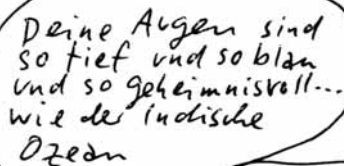 Deine Augen sind
so tief und so blau
und so geheimnisvoll...
wie der indische
Ozean